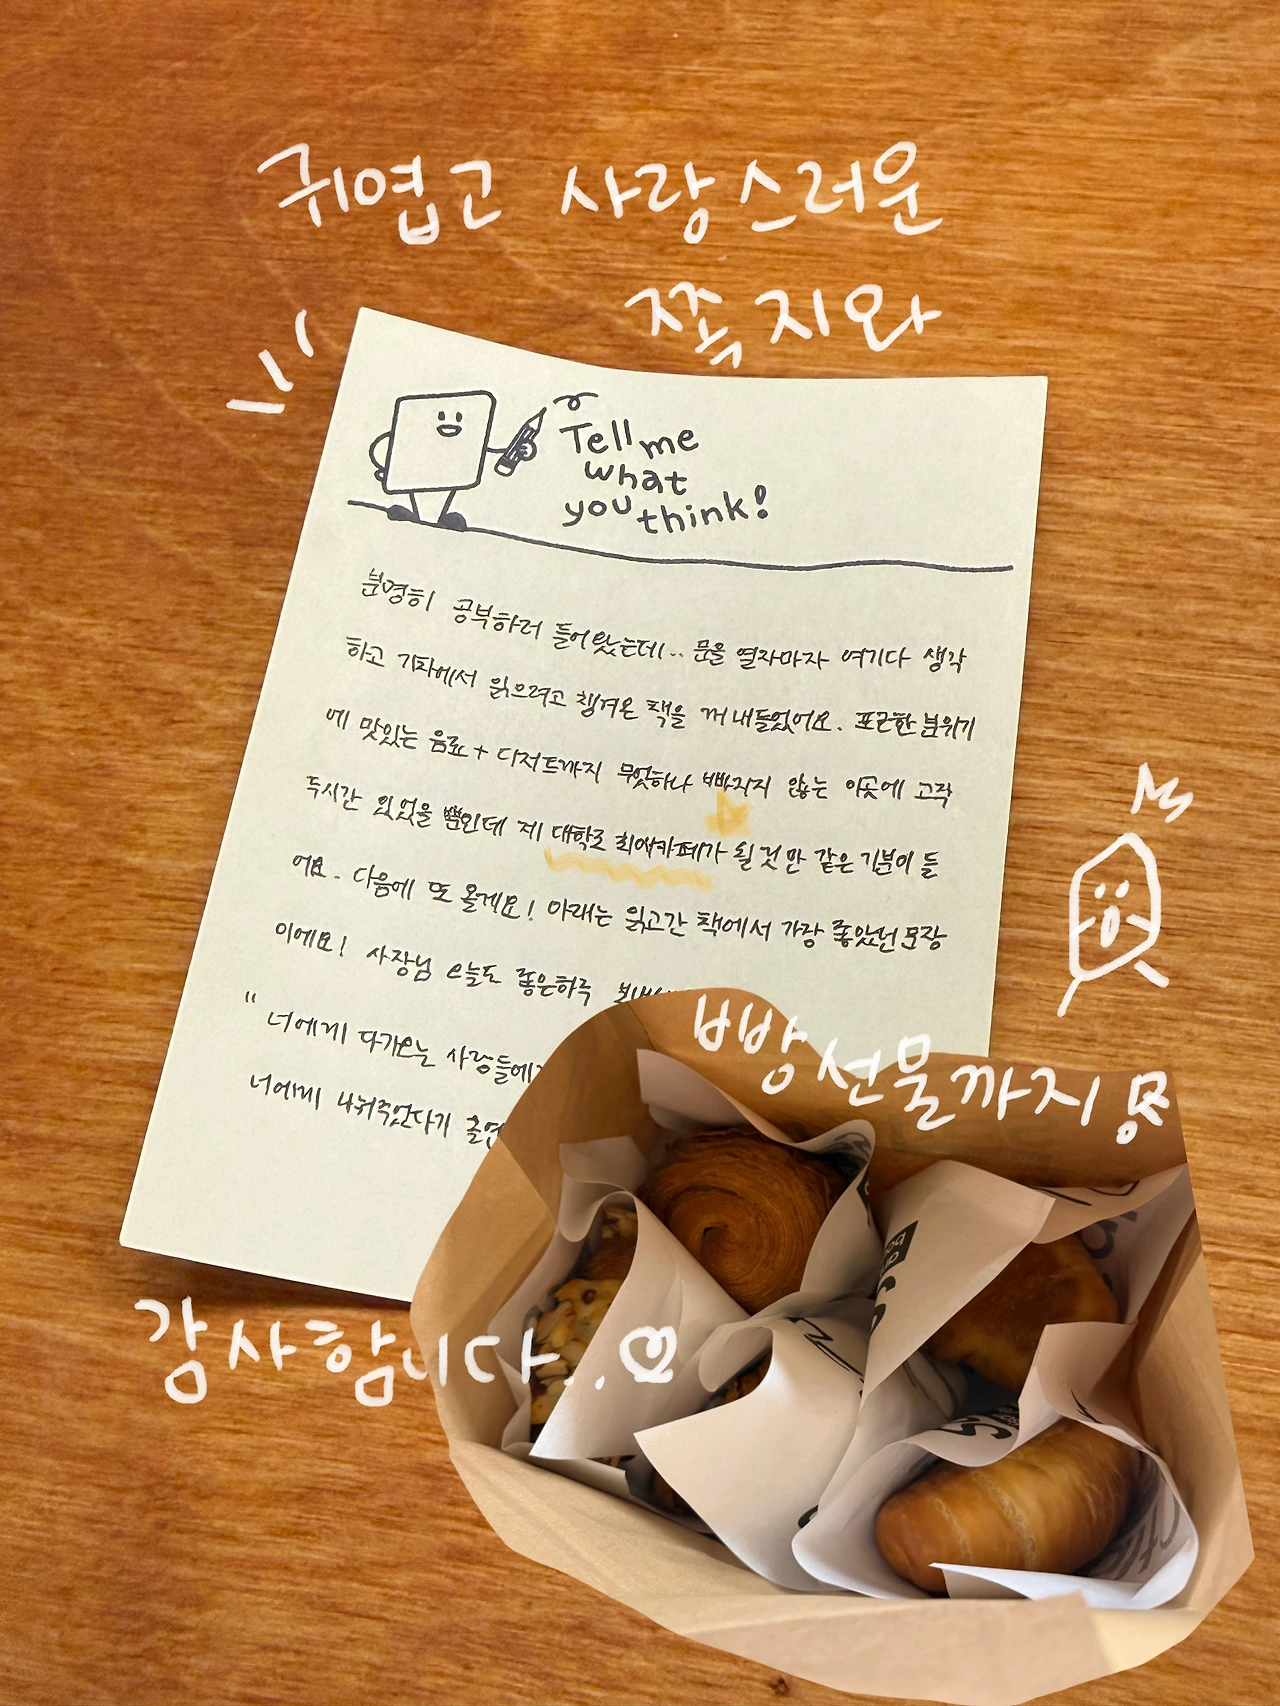 귀엽고 사랑스러운
쪽지와
Tell me
what
you think!
분명히 공부하러 들어왔는데.. 문을 열자마자 여기다 생각
하고 기차에서 읽으려고 챙겨온 책을 꺼내들었어요. 포근한 분위기
에 맛있는 음료 + 디저트까지 무엇하나 빠지지 않는 이곳에 고작
두시간 있었을 뿐인데 제 대학로 최애카페가 될 것만 같은 기분이 들
어요. 다음에 또 올게요! 아래는 읽고간 책에서 가장 좋았던 문장
이에요! 사장님 오늘도 좋은하루
" 너에게 다가오는 사람들에게
너에게 나눠주었다기
빵 선물까지
감사합니다..♡